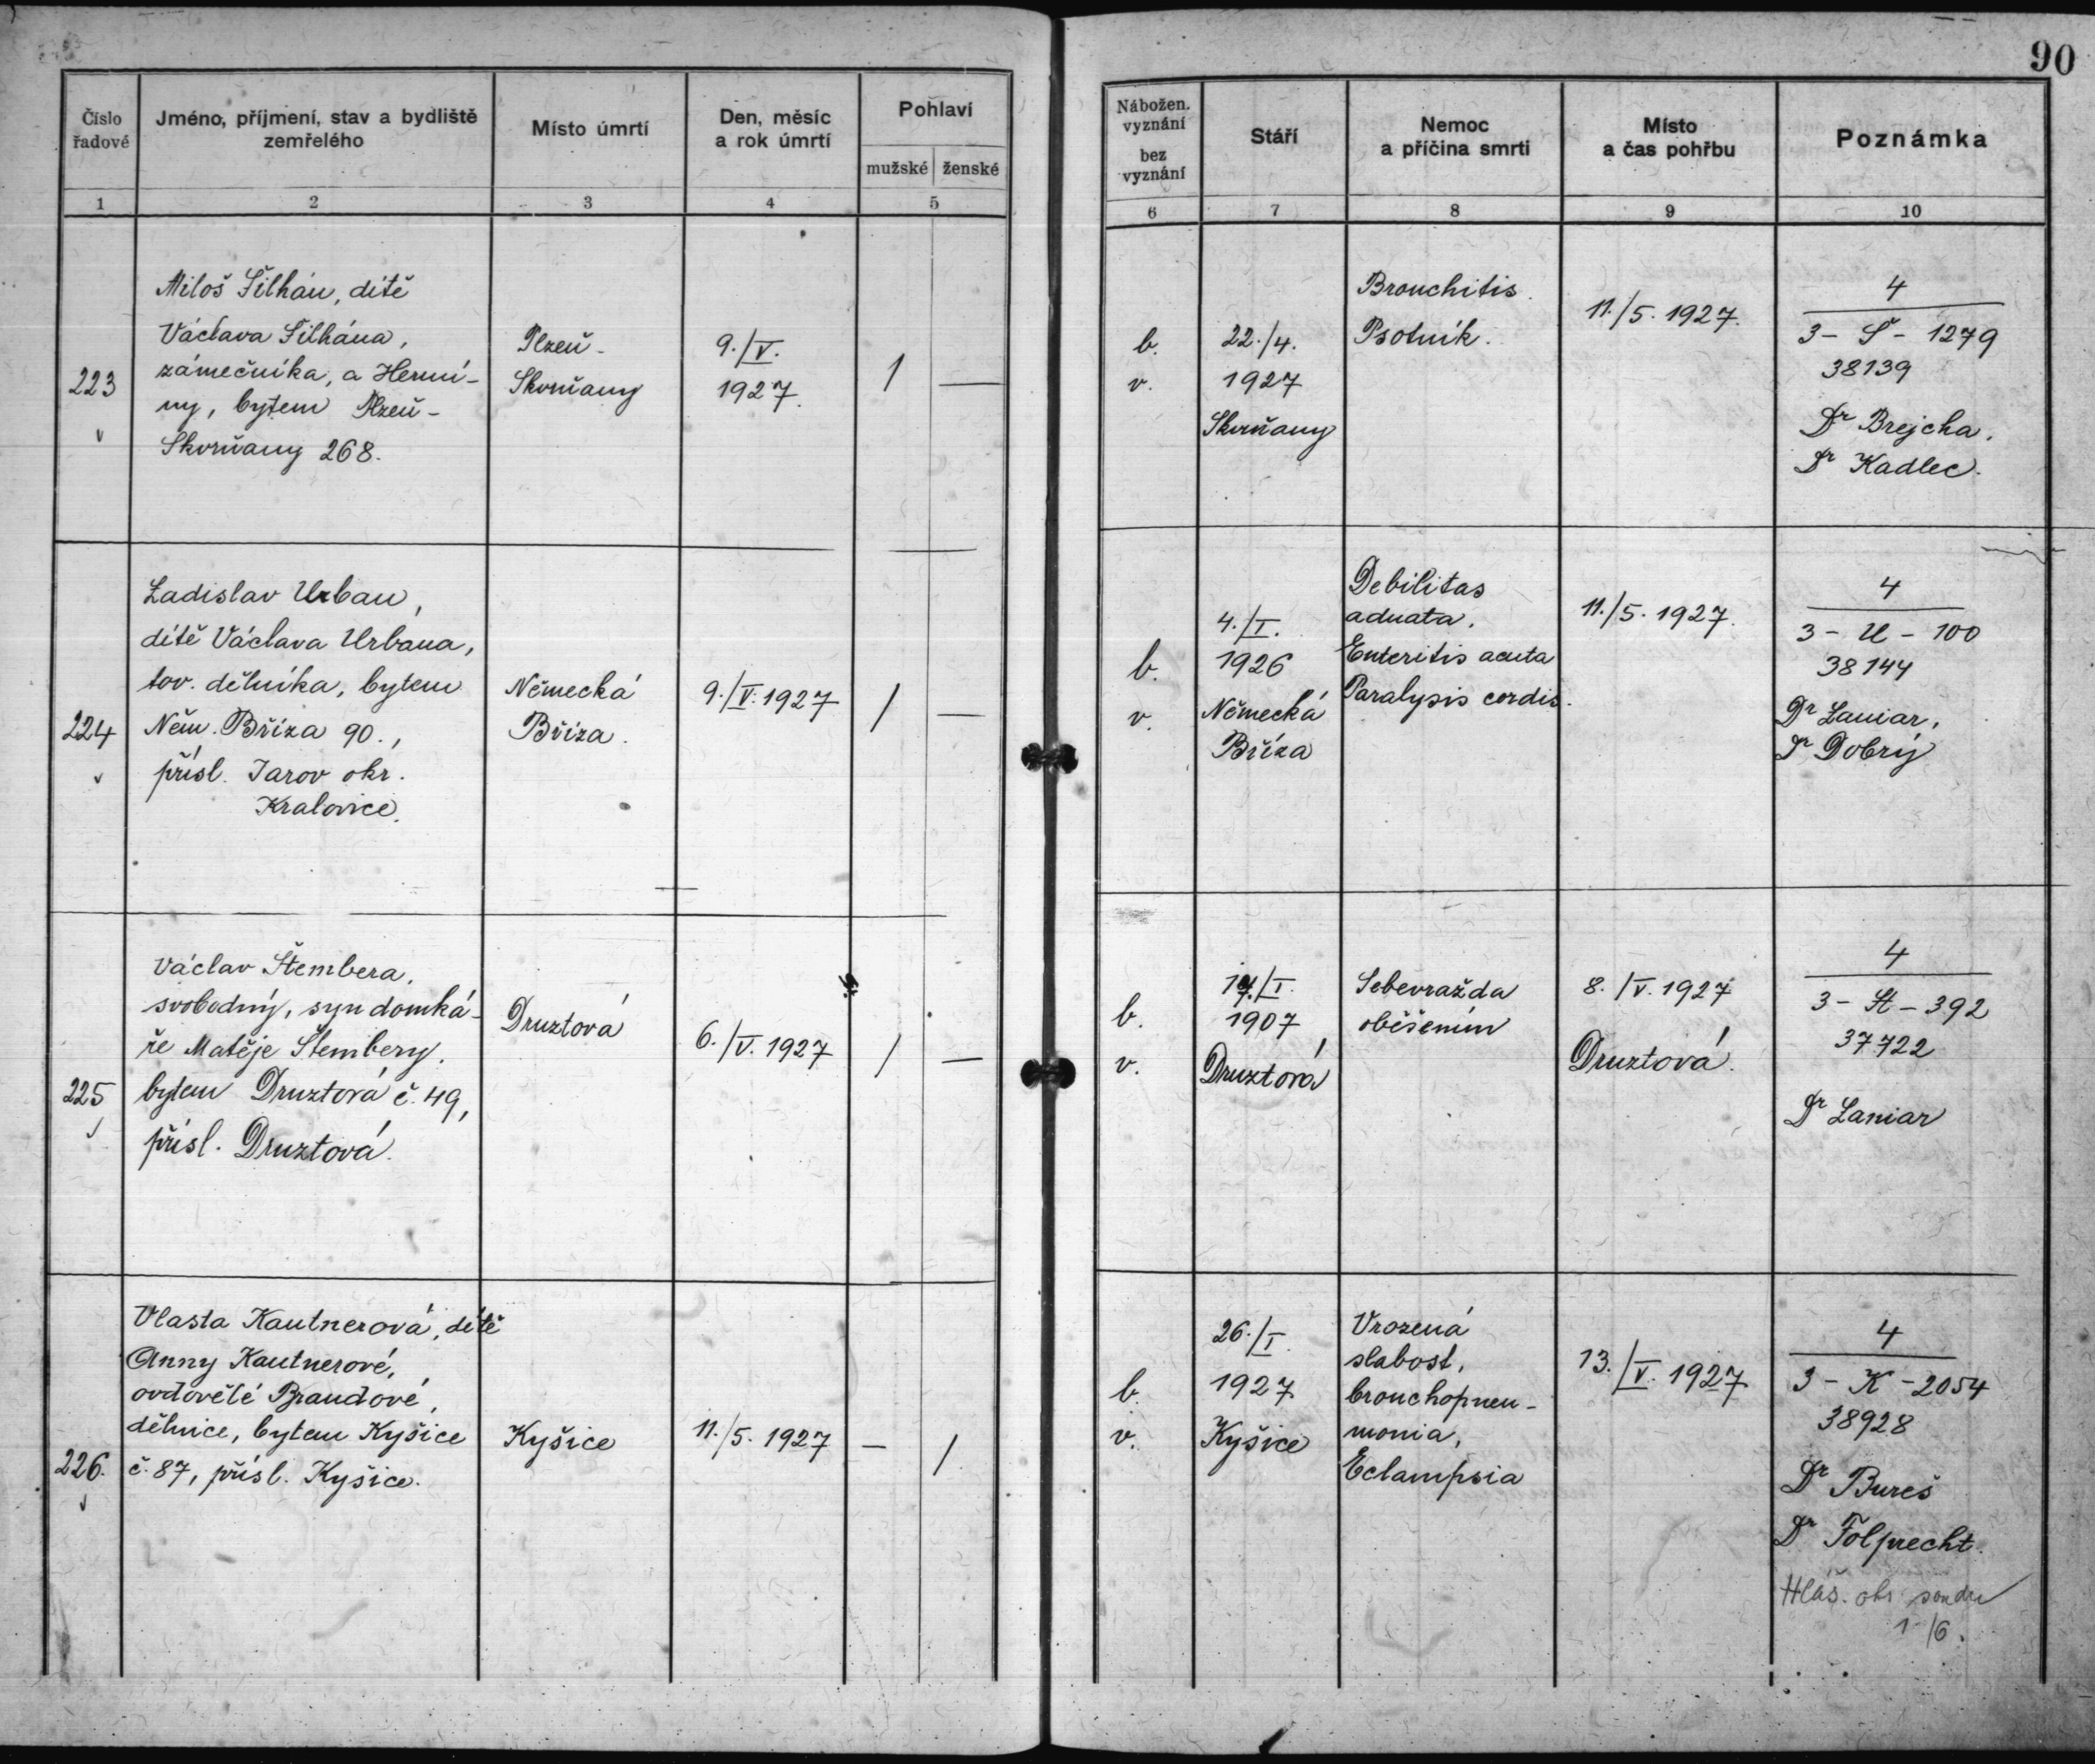 90
Číslo řadové
Jméno, příjmení, stav a bydliště zemřelého
Místo úmrtí
Den, měsíc a rok úmrtí
Pohlaví
mužské ženské
1 2 3 4 5
Nábožen. vyznání
bez vyznání
Stáří
Nemoc a příčina smrti
Místo a čas pohřbu
Poznámka
6 7 8 9 10
223
Miloš Šilhán, dítě
Václava Šilhána,
zámečníka, a Hermí-
ny, bytem Plzeň-
Skvrňany 268.
Plzeň-
Skvrňany
9./V.
1927.
/ —
b.
v.
22./4.
1927
Skvrňany
Bronchitis.
Psotník.
11./5. 1927.
4
3 - Š - 1279
38139
Dr Brejcha.
Dr Kadlec.
224
Ladislav Urban,
dítě Václava Urbana,
tov. dělníka, bytem
Něm. Bříza 90.,
přísl. Jarov okr.
Kralovice.
Německá
Bříza.
9./V. 1927
/ —
b.
v.
4./I.
1926
Německá
Bříza
Debilitas
adnata.
Enteritis acuta
Paralysis cordis.
11./5. 1927.
4
3 - U - 100
38144
Dr Laniar,
Dr Dobrý
225
Václav Štembera,
svobodný, syn domká-
ře Matěje Štembery,
bytem Druztová č. 49,
přísl. Druztová.
Druztová
6./V. 1927
/ —
b.
v.
/I.
1907
Druztová
Sebevražda
oběšením
8./V. 1927
Druztová.
4
3 - St - 392
37722
Dr Laniar
226.
Vlasta Kautnerová, dítě
Anny Kautnerové,
ovdovělé Brandové,
dělnice, bytem Kyšice
č. 87, přísl. Kyšice.
Kyšice
11./5. 1927
— /
b.
v.
26./I.
1927
Kyšice
Vrozená
slabost,
bronchopneu-
monia,
Eclampsia
13./V. 1927
4
3 - K - 2054
38928
Dr Bureš
Dr Folprecht.
Hláš. okr. soudu
1./6.